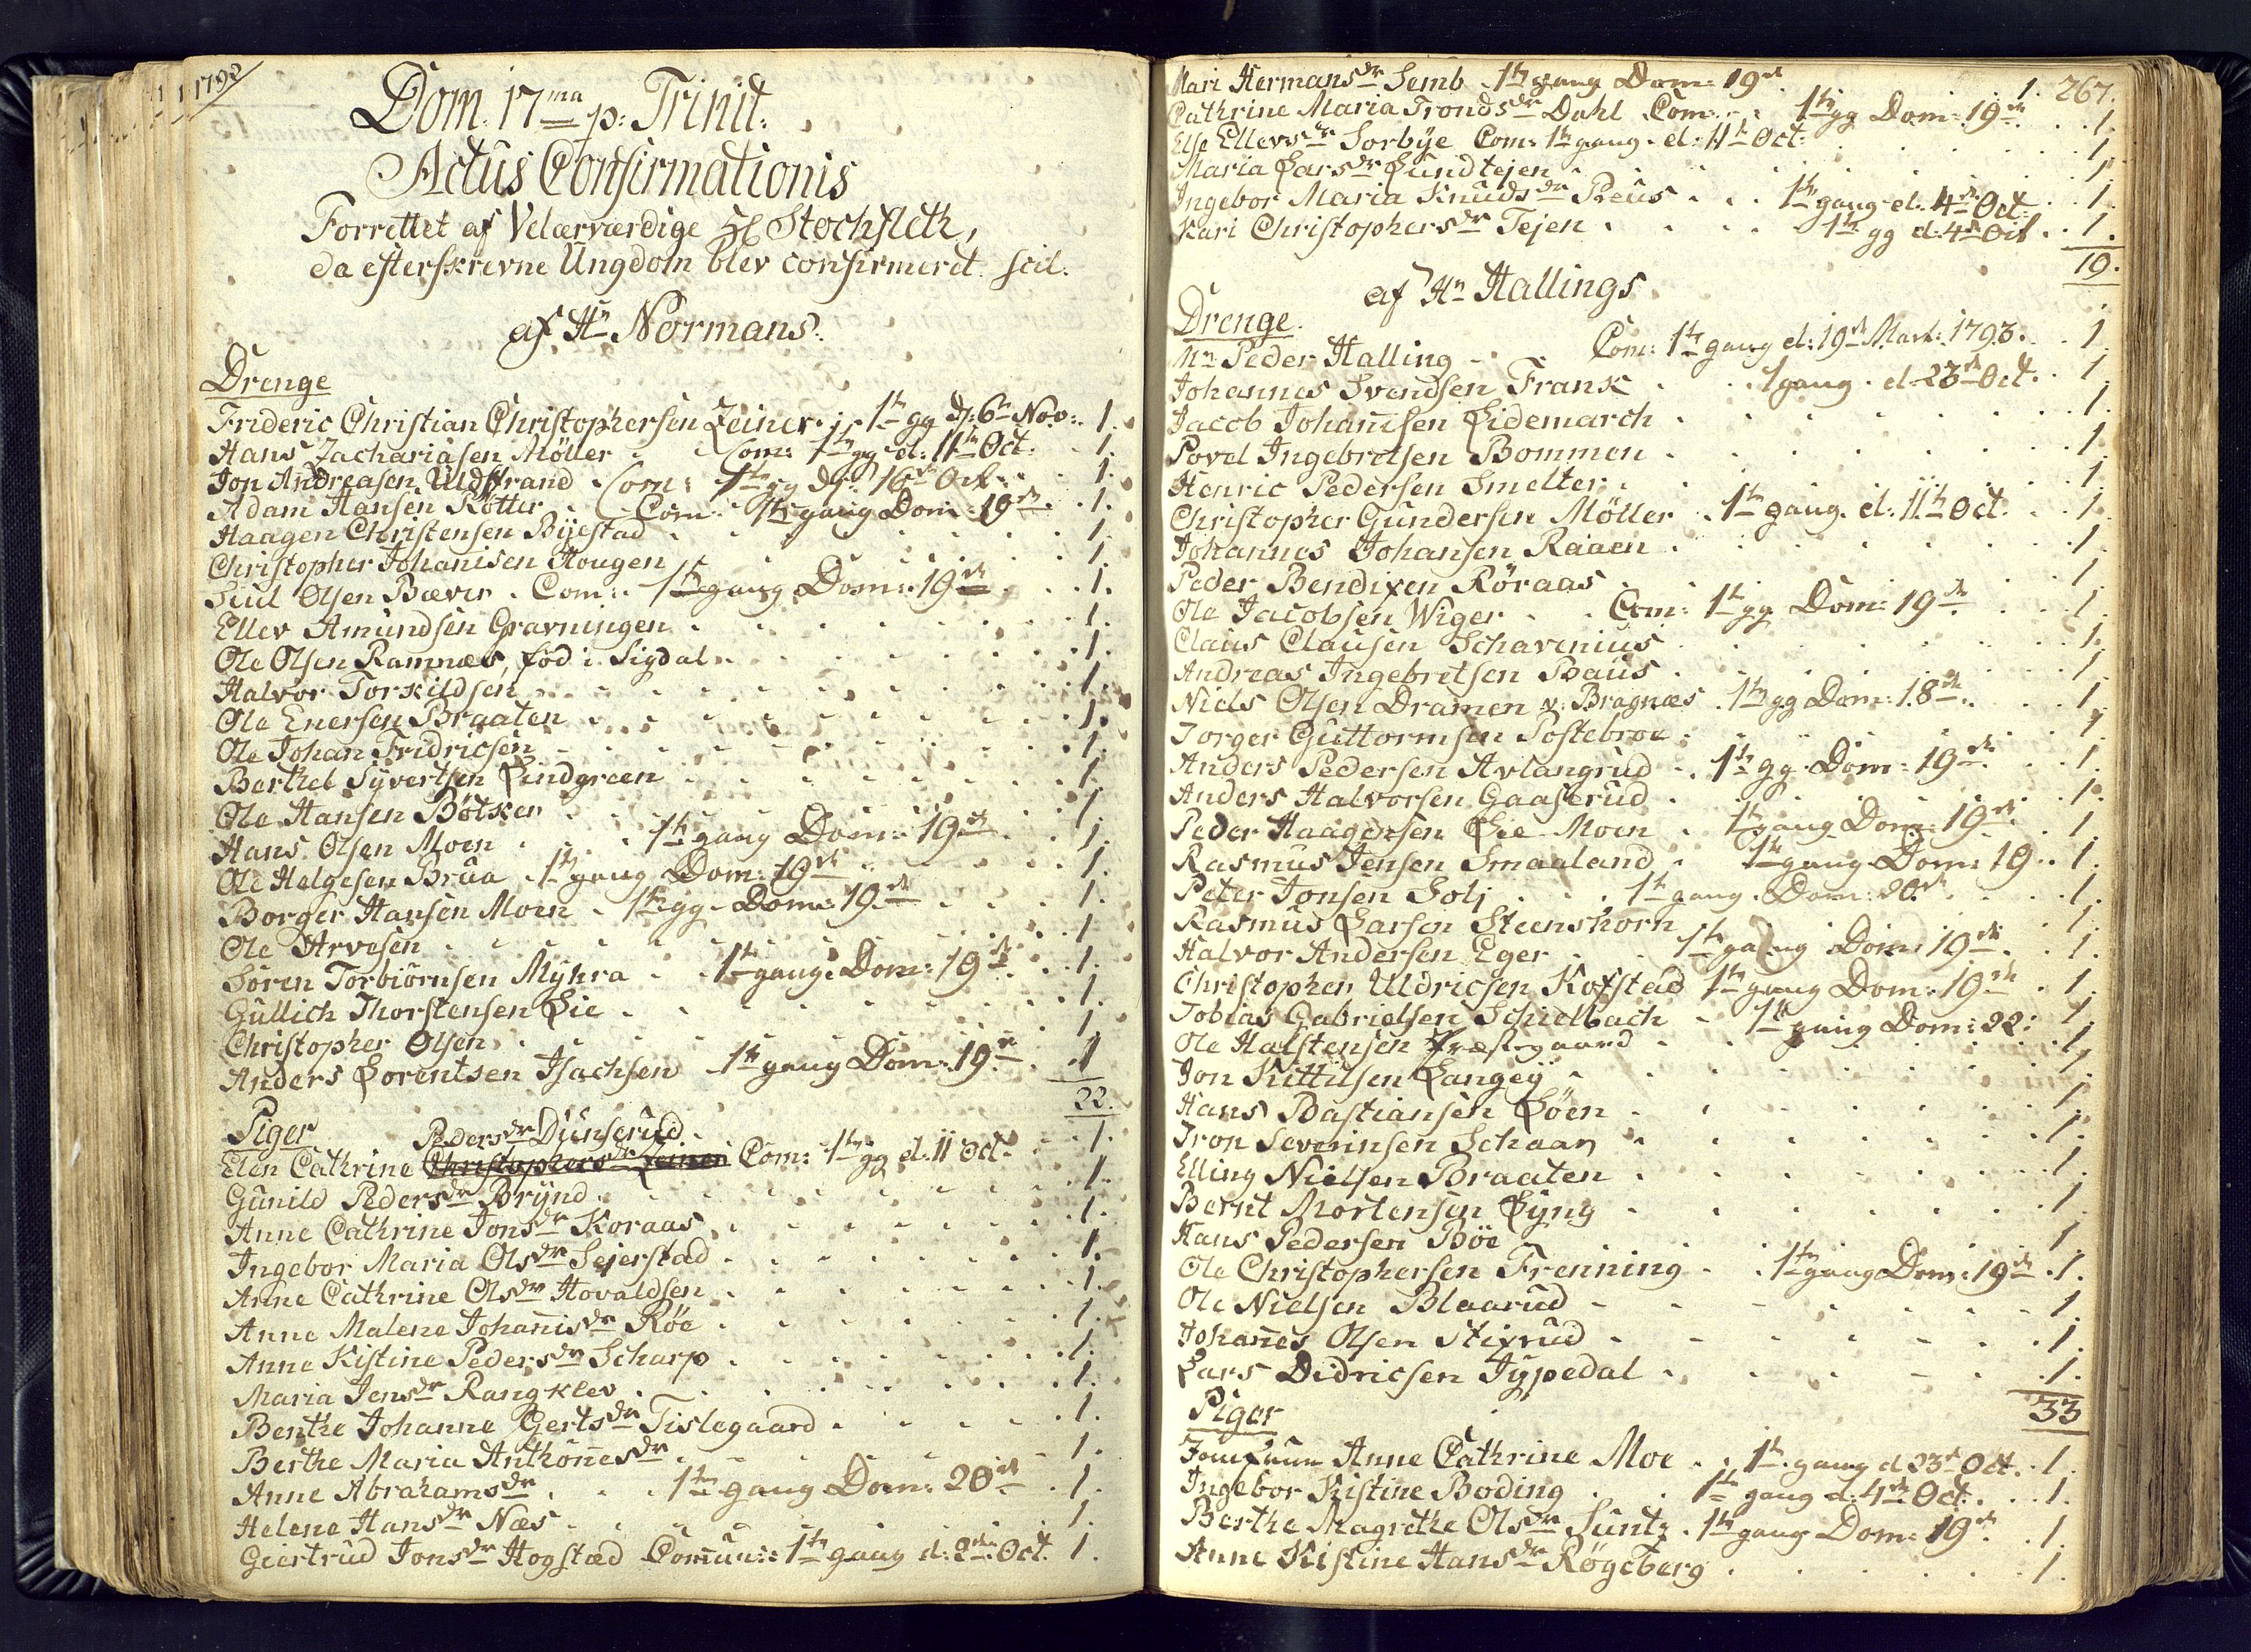 1792
Dom. 17ma p: Trinit:
Actus Confirmationis
Forrettet af Velærværdige Hl Stochfleth,
da efterskrevne Ungdom blev confirmeret. scil:
af Hn Normans.
Drenge
Frideric Christian Christophersen Zeiner. 1te gg d: 6te Nov: 1.
Hans Zachariasen Möller Com: 1te gg d: 11te Oct: 1.
Jon Andreasen Uldstrand Com: 1te gg d: 16de Oct: 1.
Adam Hansen Rötter. Com: 1te gang Dom: 19de. 1.
Haagen Christensen Bÿestad 1.
Christopher Johanisen Hougen 1.
Juul Olsen Bæver. Com: 1te gang Dom: 19de 1.
Ellev Amundsen Gravningen 1.
Ole Olsen Ramnæs, föd i Sigdal 1.
Halvor Torkildsen 1.
Ole Enersen Braaten 1.
Ole Johan Fridricsen 1.
Berthel Sÿvertsen Lindgreen 1.
Ole Hansen Bötker 1.
Hans Olsen Moen 1te gang Dom: 19de 1.
Ole Helgesen Brua 1te gang Dom: 19de 1.
Borger Hansen Moen 1te gg Dom: 19de 1.
Ole Arvesen 1.
Sören Torbiörnsen Mÿhra 1te gang Dom: 19de 1.
Gullich Thorstensen Lie 1.
Christopher Olsen 1.
Anders Lorentsen Isachsen 1te gang Dom: 19de 1
22.
Piger Pedersdr Dunserud 1.
Elen Cathrine Christophersdr Zeiner Com: 1te gg d: 11 Oct
Gunild Pedersdr Brÿnd 1.
Anne Cathrine Jonsdr Koraas 1.
Ingebor Maria Olsdr Sejerstad 1.
Anne Cathrine Olsdr Hovaldsen 1.
Anne Malene Johanisdr Röe 1.
Anne Kistine Pedersdr Scharp 1.
Maria Jensdr Rangklev 1.
Benthe Johanne Gertsdr Tislegaard 1.
Berthe Maria Anthonesdr 1.
Anne Abrahamsdr 1te gang Dom: 20de 1.
Helene Hansdr Næs 1.
Giertrud Jonsdr Hogstad Comun: 1te gang d: 2den Oct. 1.
267.
Mari Hermansdr Semb 1te gang Dom: 19de 1.
Cathrine Maria Trondsdr Dahl Com: 1te gg Dom: 19de 1.
Else Ellevsdr Sorbÿe Com: 1te gang d: 11te Oct: 1.
Maria Larsdr Lundtejen 1
Ingebor Maria Knudsdr Preus 1te gang d: 4de Oct: 1.
Kari Christophersdr Tejen 1te gg d: 4de Oct 1.
19.
af Hn Hallings
Drenge.
Mr Peder Halling Com: 1te gang d: 19de Mart: 1793. 1
Johannes Svendsen Frank 1 gang d 23de Oct. 1
Jacob Johanisen Lidemarch 1.
Povel Ingebretsen Bommen 1.
Henric Pedersen Smelter 1.
Christopher Gundersen Möller 1te gang d: 11te Oct. 1.
Johannes Johansen Raaen 1.
Peder Bendixen Röraas 1.
Ole Jacobsen Wiger Com: 1te gg Dom: 19de 1.
Claus Clausen Schavenius 1.
Andreas Ingebretsen Baaus 1.
Niels Olsen Dramen v: Bragnæs 1te gg Dom: 18de 1.
Torger Guttormsen Postebroe 1
Anders Pedersen Avlangrud 1te gg Dom: 19de 1.
Anders Halvorsen Gaaserud 1.
Peder Haagensen Lie Moen 1te gang Dom: 19de 1.
Rasmus Jensen Smaaland 1te gang Dom: 19. 1.
Peter Jonsen Solj 1te gang Dom: 20de 1.
Rasmus Larsen Steenshorn 1.
Halvor Andersen Eger 1te gang Dom: 19de 1.
Christopher Uldricsen Kofstad 1te gang Dom: 19de 1.
Tobias Gabrielsen Schielbach 1te gang Dom: 22: 1.
Ole Halstensen Præstegaard 1.
Jon Kittilsen Langeÿ 1.
Hans Bastiansen Löen 1.
Iron Severinsen Schaan 1.
Elling Nielsen Braaten 1.
Bernt Mortensen Lÿng 1.
Hans Pedersen Böe 1
Ole Christophersen Frenning 1te gang Dom: 19de 1.
Ole Nielsen Blaarud 1.
Johanes Olsen Stixrud 1.
Lars Didricsen Jÿpedal 1.
33
Piger
Jomfrue Anne Cathrine Moe 1te gang d 23de Oct. 1.
Ingebor Kistine Boding 1te gang d: 4de Oct. 1.
Berthe Magrethe Olsdr Suntz 1te gang Dom: 19de 1.
Anne Kistine Hansdr Rögeberg 1.